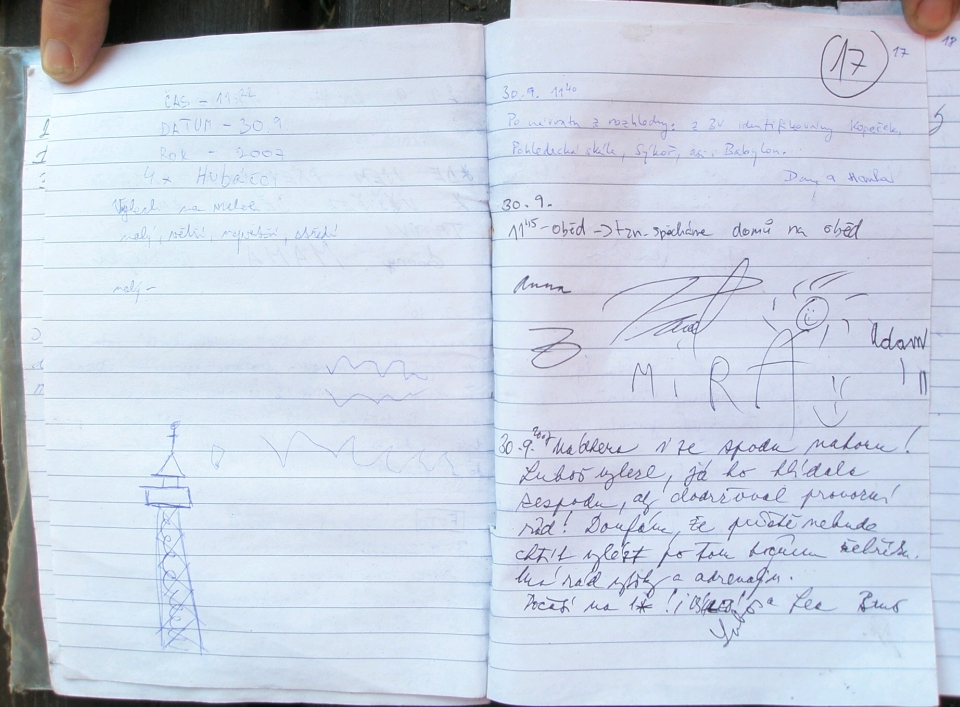 ČAS - 11:22
DATUM - 30.9
Rok - 2007
4 x HUBÁČCI
Výhled na
malý, větší, největší, střední
malý -
17
17
18
30.9. 11:40
Po návratu z rozhledny: z ZV identifikovány Kopeček,
Pohledecká skála, Sýkoř, asi Babylon.
Dan a Hanka
30.9.
11:45 - oběd -> tzn. spěcháme domů na oběd
Anna
MíRA
Adam
30.9. 2007 Nádhera i ze spodu nahoru!
Luboš vylezl, já ho hlídala
zespodu, aby dodržoval provozní
řád! Doufám, že příště nebude
chtít vylézt po tom bočním žebříku.
Má rád výšky a adrenalin.
Počasí na 1* ! Luboš a Lea Brno